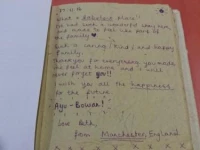 What a fabulous Man!
He had such a wonderful story man,
and made us feel like part of
the family ♥
But a caring, kind, and happy
family.
Thank you for everything you made
us feel at home and I will
never forget you!!
I wish you all the happiness
for the future
Ayu-Bowan!
Love Beth,
from Manchester, England